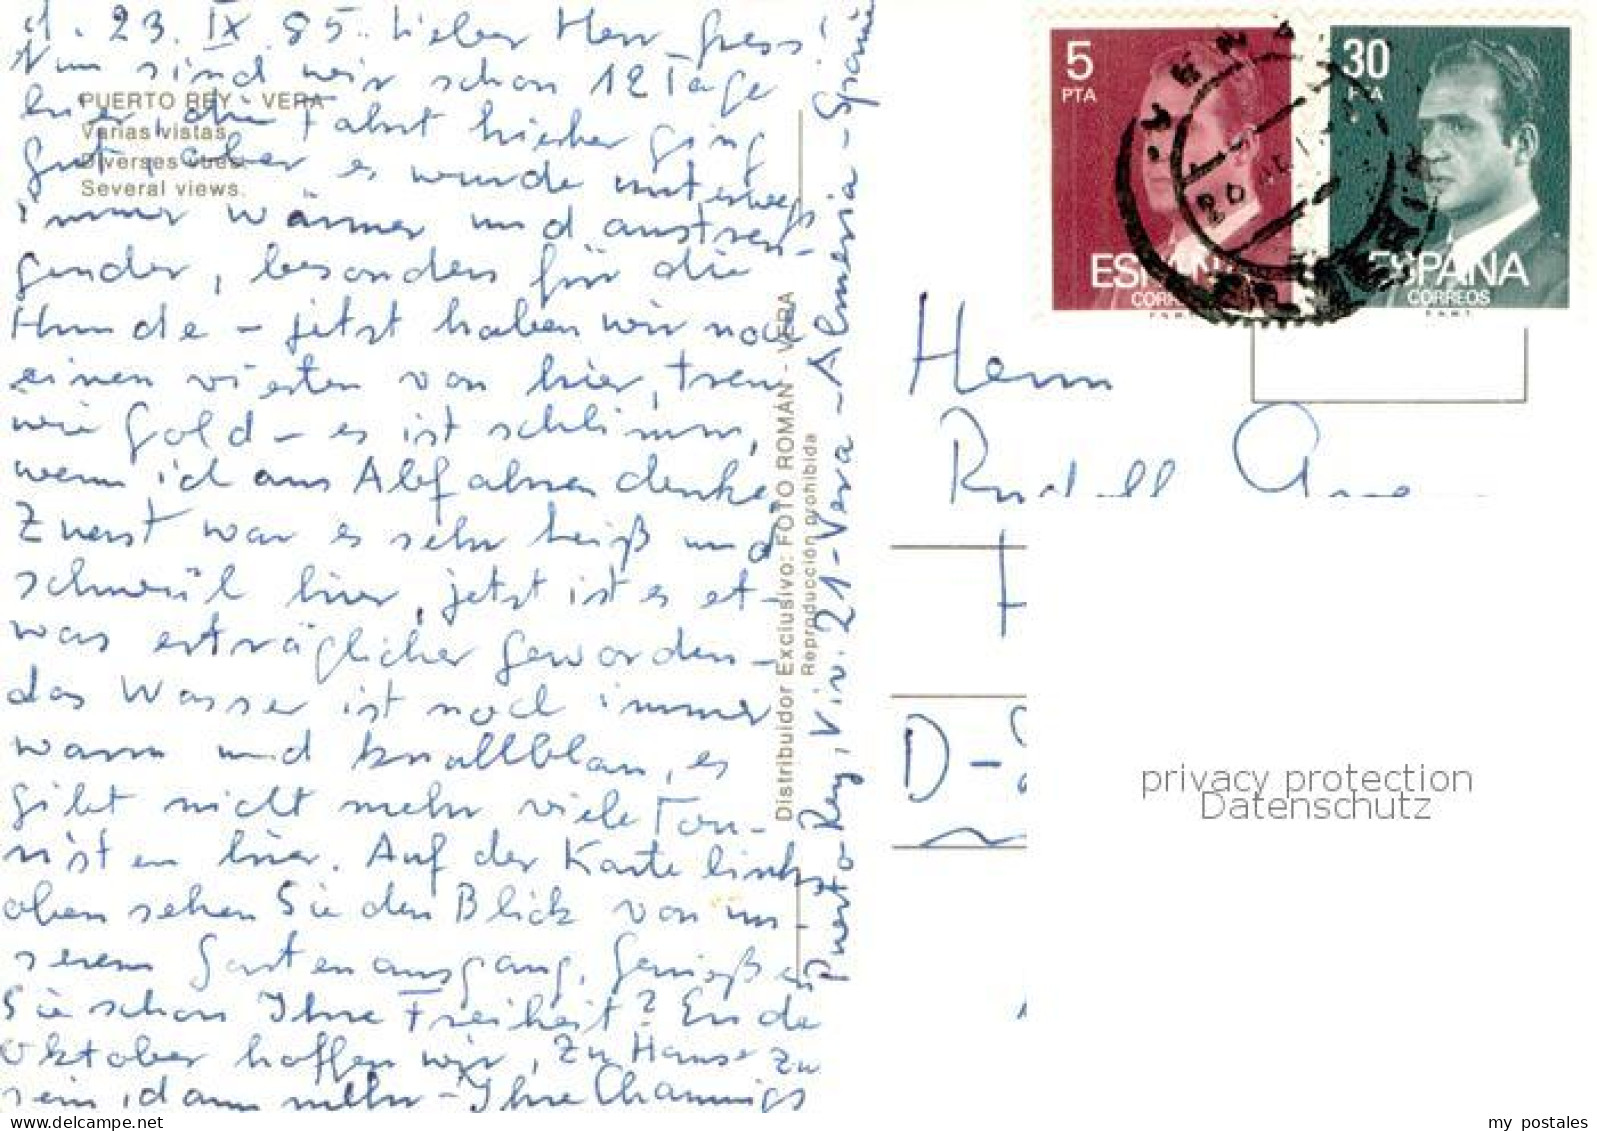 d. 23. IX. 85. Lieber Herr Gress!
Nun sind wir schon 12 Tage
hier, die Fahrt hierher ging
gut, aber es wurde unterwegs
immer wärmer und anstren-
gender, besonders für die
Hunde – jetzt haben wir noch
einen vierten von hier, treu
wie Gold – es ist schlimm,
wenn ich ans Abfahren denke.
Zuerst war es sehr heiß und
schwül hier, jetzt ist es et-
was erträglicher geworden –
das Wasser ist noch immer
warm und knallblau, es
gibt nicht mehr viele Tou-
risten hier. Auf der Karte links
oben sehen Sie den Blick von un-
serem Gartenausgang. Genießen
Sie schon Ihre Freiheit? Ende
Oktober hoffen wir, zu Hause zu
sein, dann mehr – Ihre
Puerto Rey, Viv. 21 - Vera - Almeria - Spanien
PUERTO REY - VERA
Varias vistas.
Diverses vues.
Several views.
Distribuidor Exclusivo: FOTO ROMÁN - VERA
Reproducción prohibida
5
PTA
ESPAÑA
CORREOS
F.N.M.T.
30
PTA
ESPAÑA
CORREOS
F.N.M.T.
Herrn
Rudolf
D-
privacy protection
Datenschutz
my_postales